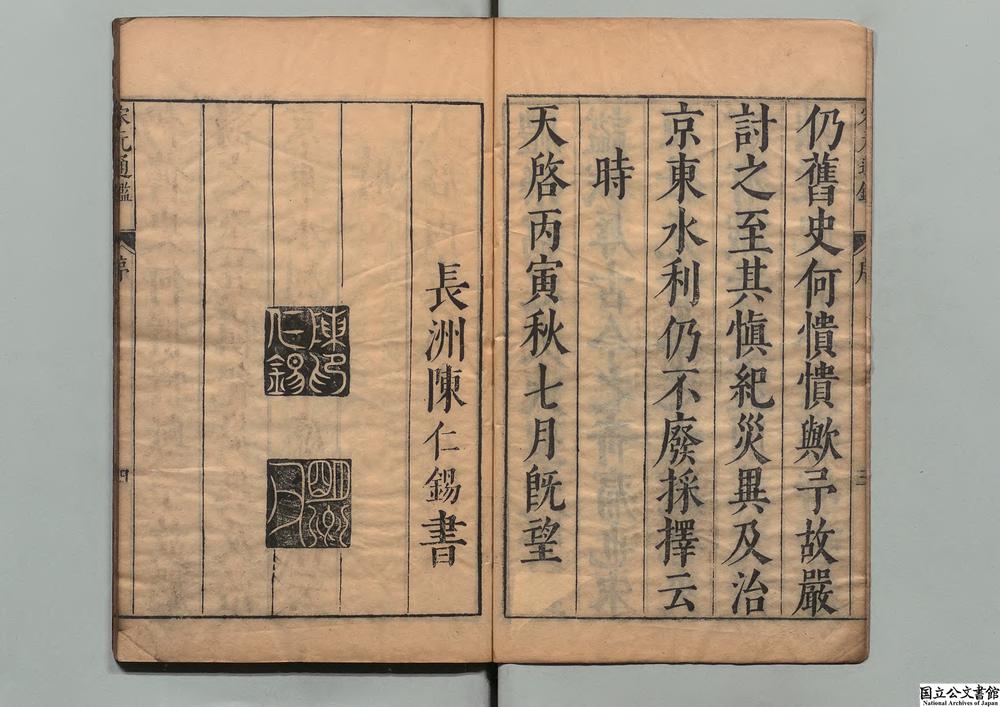 仍舊史何憒憒歟予故嚴
討之至其慎紀災異及治
京東水利仍不廢採擇云
時
天啓丙寅秋七月既望
長洲陳仁錫書
陳印
仁錫
明卿
宋元通鑑
序
三
宋元通鑑
序
四
国立公文書館
National Archives of Japan